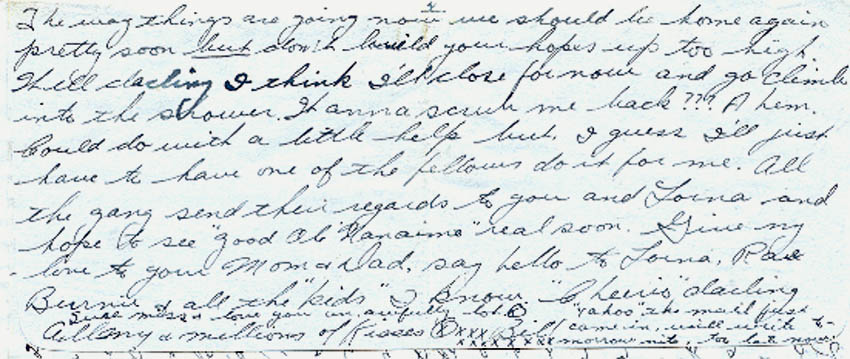 4
The way things are going now we should be home again
pretty soon but don't build your hopes up too high.
Well darling I think I'll close for now and go climb
into the shower. Wanna scrub me back??? Ahem.
Could do with a little help but I guess I'll just
have to have one of the fellows do it for me. All
the gang send their regards to you and Lorna and
hope to see "good Ole Nanaimo" real soon. Give my
love to your Mom & Dad, say hello to Lorna, Rae
Burnie & all the "kids" I know. "Cheerio" darling
Sure miss & love you an awfully lot. "Yahoo" the mail just
All my & millions of Kisses xxx Bill came in. will write to-
xxxxxxx morrow nite. too late now.